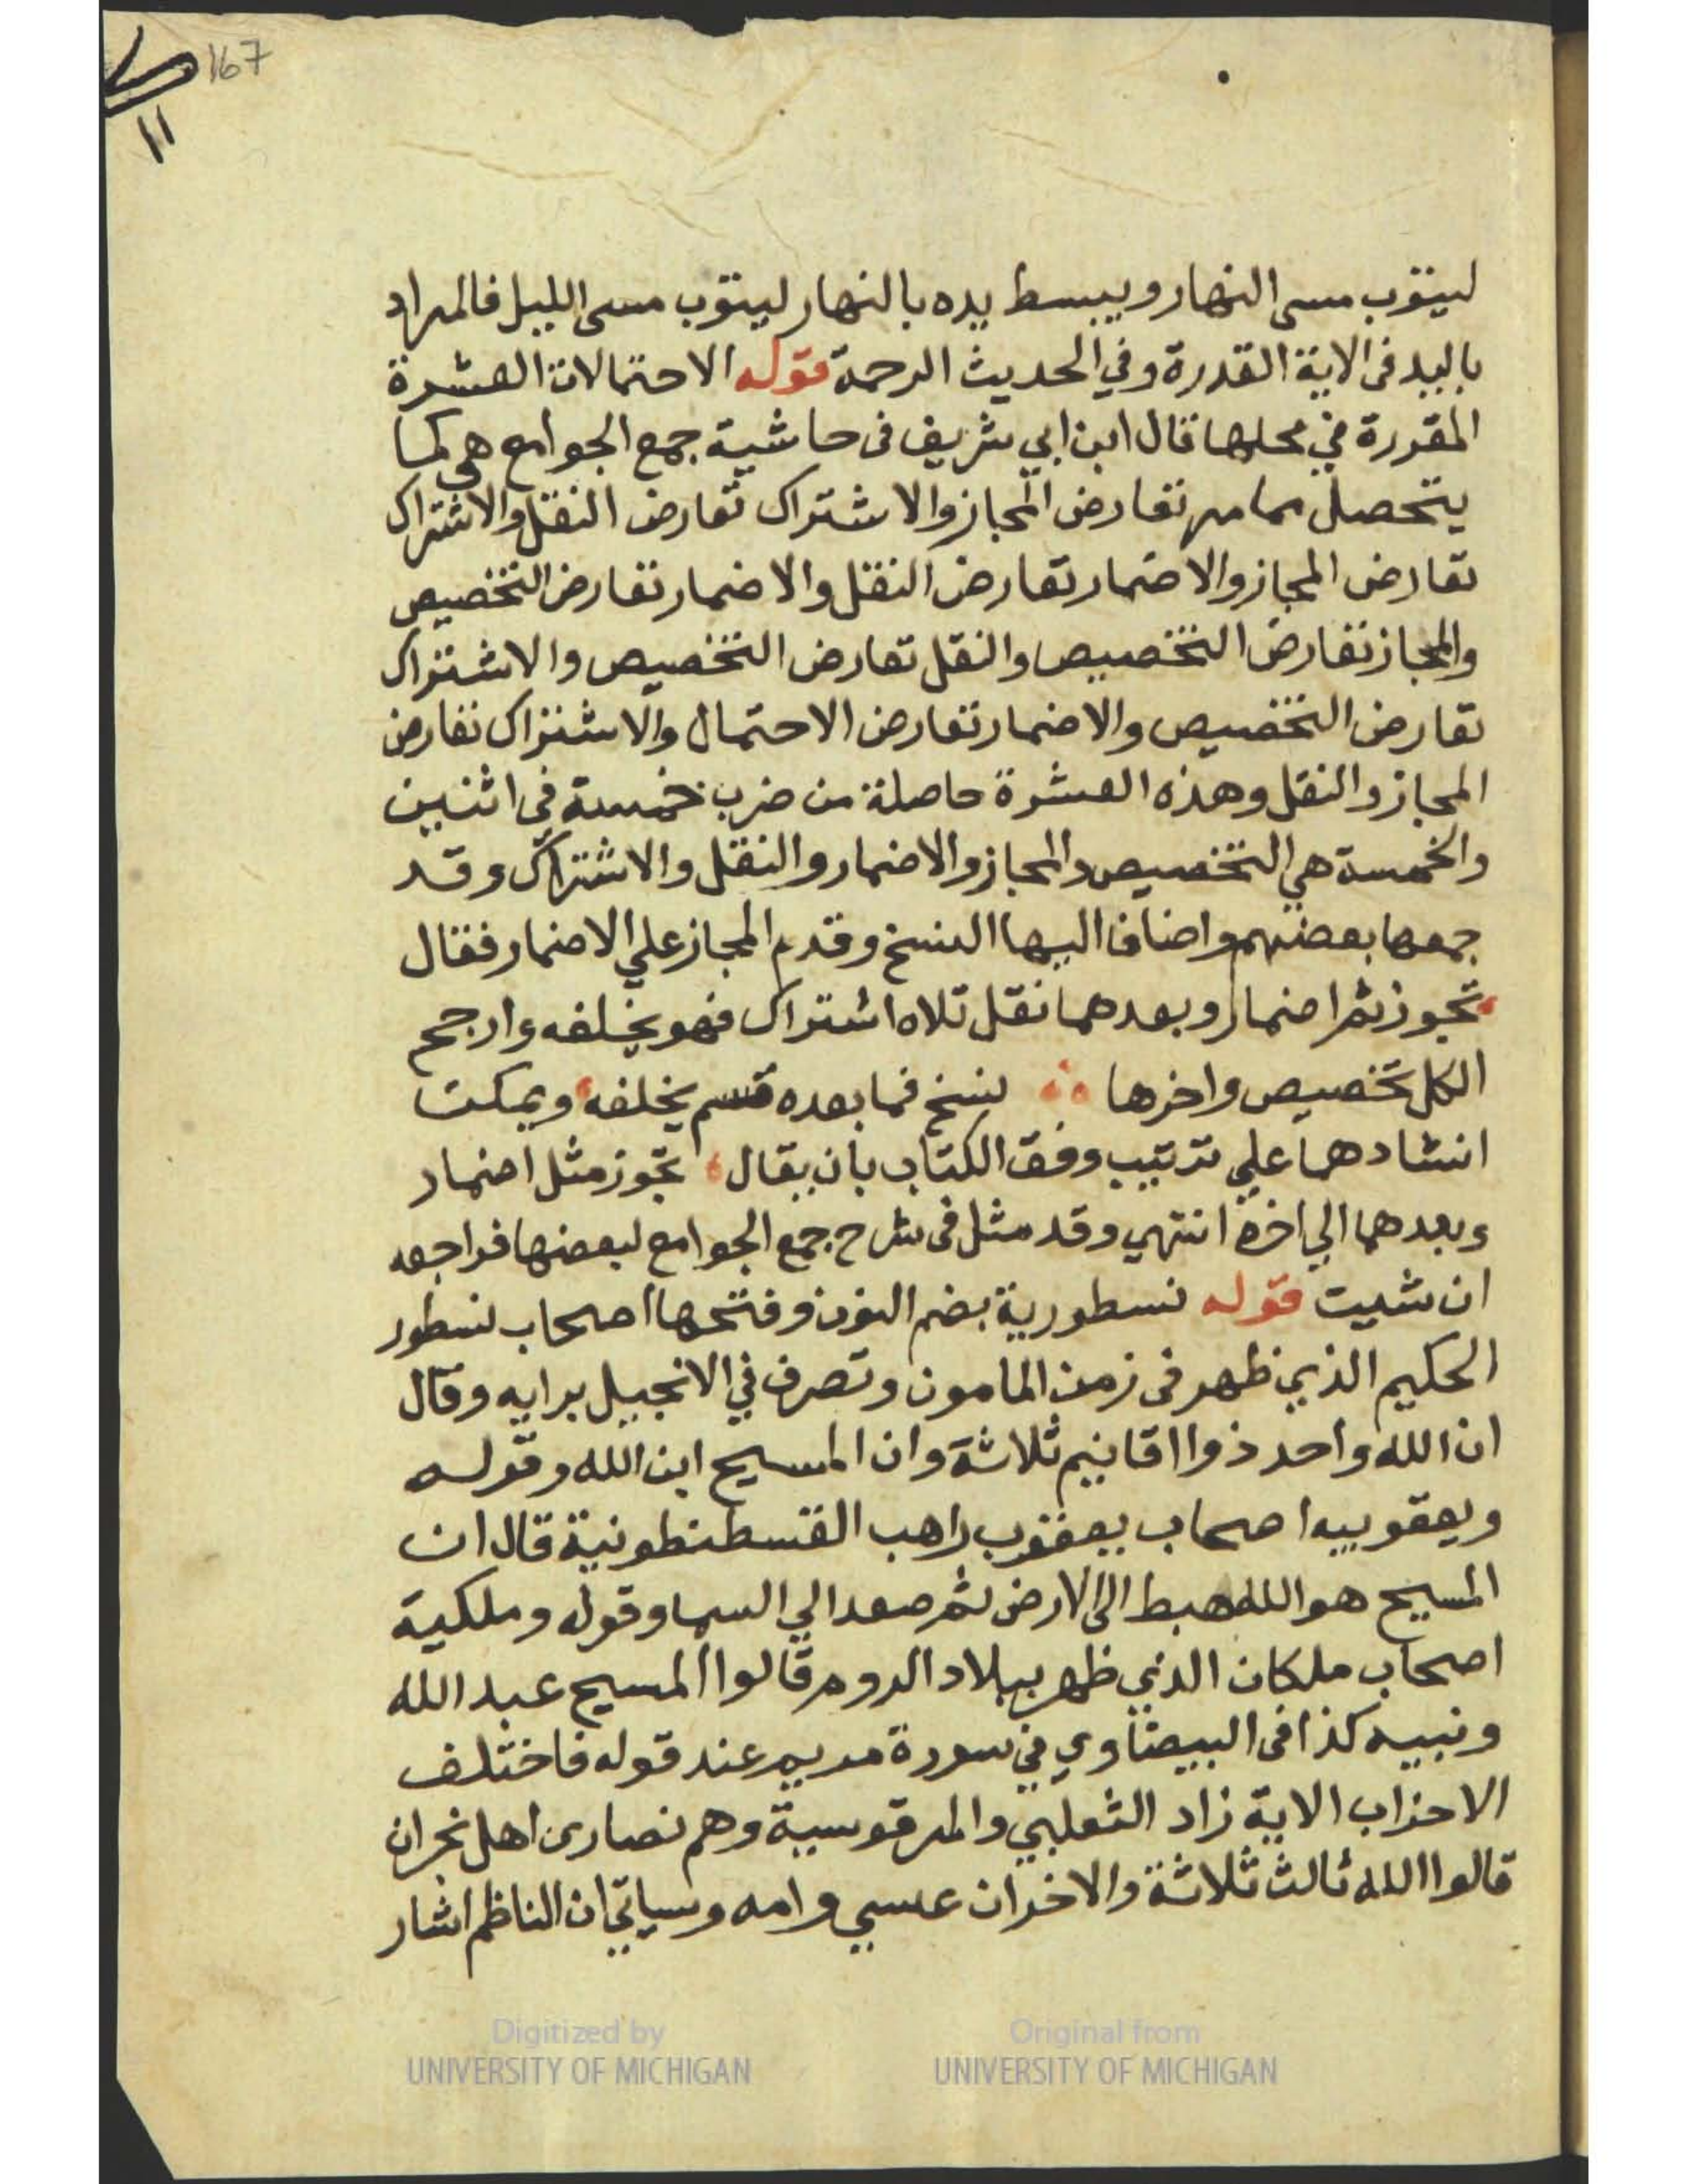 167
١١
ليتوب مسى النهار ويبسط يده بالنهار ليتوب مسى الليل فالمراد
باليد فى الاية القدرة وفي الحديث الرحمة قوله الاحتمالات العشرة
المقررة في محلها قال ابن ابي شريف فى حاشية جمع الجوامع هي كما
يتحصل مما مر تعارض المجاز والاشتراك تعارض النقل والاشتراك
تعارض المجاز والاضمار تعارض النقل والاضمار تعارض التخصيص
والمجاز تعارض التخصيص والنقل تعارض التخصيص والاشتراك
تعارض التخصيص والاضمار تعارض الاحتمال والاشتراك تعارض
المجاز والنقل وهذه العشرة حاصلة من ضرب خمسة في اثنين
والخمسة هي التخصيص والمجاز والاضمار والنقل والاشتراك وقد
جمعها بعضهم واضاف اليها النسخ وقدم المجاز علي الاضمار فقال
تجوز ثم اضمار وبعدهما نقل تلاه اشتراك فهو يخلفه وارجح
الكل تخصيص واخرها نسخ فما بعده قسم يخلفه ويمكن
انشادهما علي ترتيب وفق الكتاب بان يقال تجوز مثل اضمار
وبعدهما الي اخره انتهي وقد مثل فى شرح جمع الجوامع لبعضها فراجعه
ان شيت قوله نسطورية بضم النون وفتحها اصحاب نسطور
الحكيم الذي ظهر فى زمن المامون وتصرف في الانجيل برايه وقال
ان الله واحد ذوا اقانيم ثلاثة وان المسيح ابن الله وقوله
ويعقوبيه اصحاب يعقوب راهب القسطنطونية قال ان
المسيح هو الله هبط الى الارض ثم صعد الي السما وقوله وملكية
اصحاب ملكان الذي ظهر ببلاد الروم قالوا المسيح عبد الله
ونبيه كذا فى البيضاوي في سورة مريم عند قوله فاختلف
الاحزاب الاية زاد الثعلبي والمرقوسية وهم نصارى اهل نجران
قالوا الله ثالث ثلاثة والاخران عسي وامه وسياتي ان الناظم اشار
Digitized by
UNIVERSITY OF MICHIGAN
Original from
UNIVERSITY OF MICHIGAN